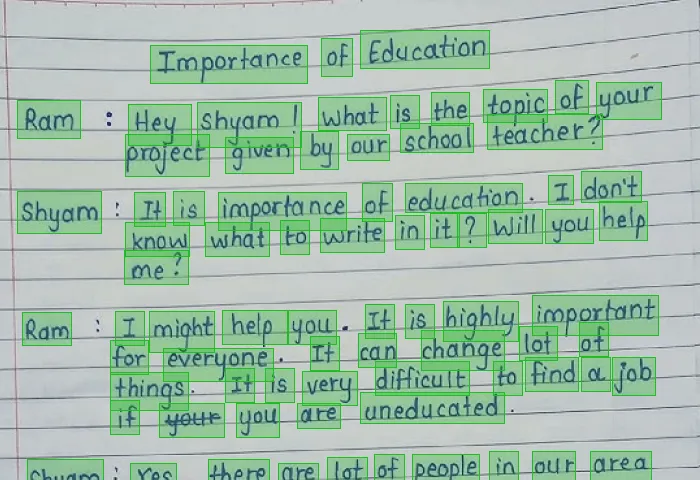 Importance of Education
Ram : Hey Shyam! What is the topic of your
project given by our school teacher?
Shyam : It is importance of education. I don't
know what to write in it? Will you help
me?
Ram : I might help you. It is highly important
for everyone. It can change lot of
things. It is very difficult to find a job
if your you are uneducated.
Shyam : Yes there are lot of people in our area